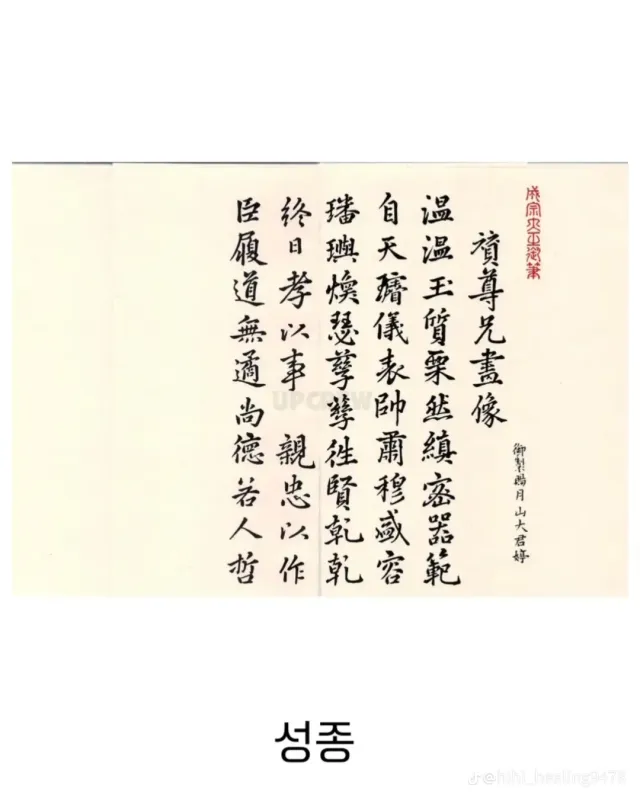 成宗大王御筆
讚尊兄畫像
御製賜月山大君婷
溫溫玉質栗然縝密器範
自天璿儀表帥爾穆盛容
璠璵煥瑟孳孳徃賢乾乾
終日孝以事 親忠以作
臣履道無遹尚德若人哲
성종
UPCREW
@hihi_healing9478